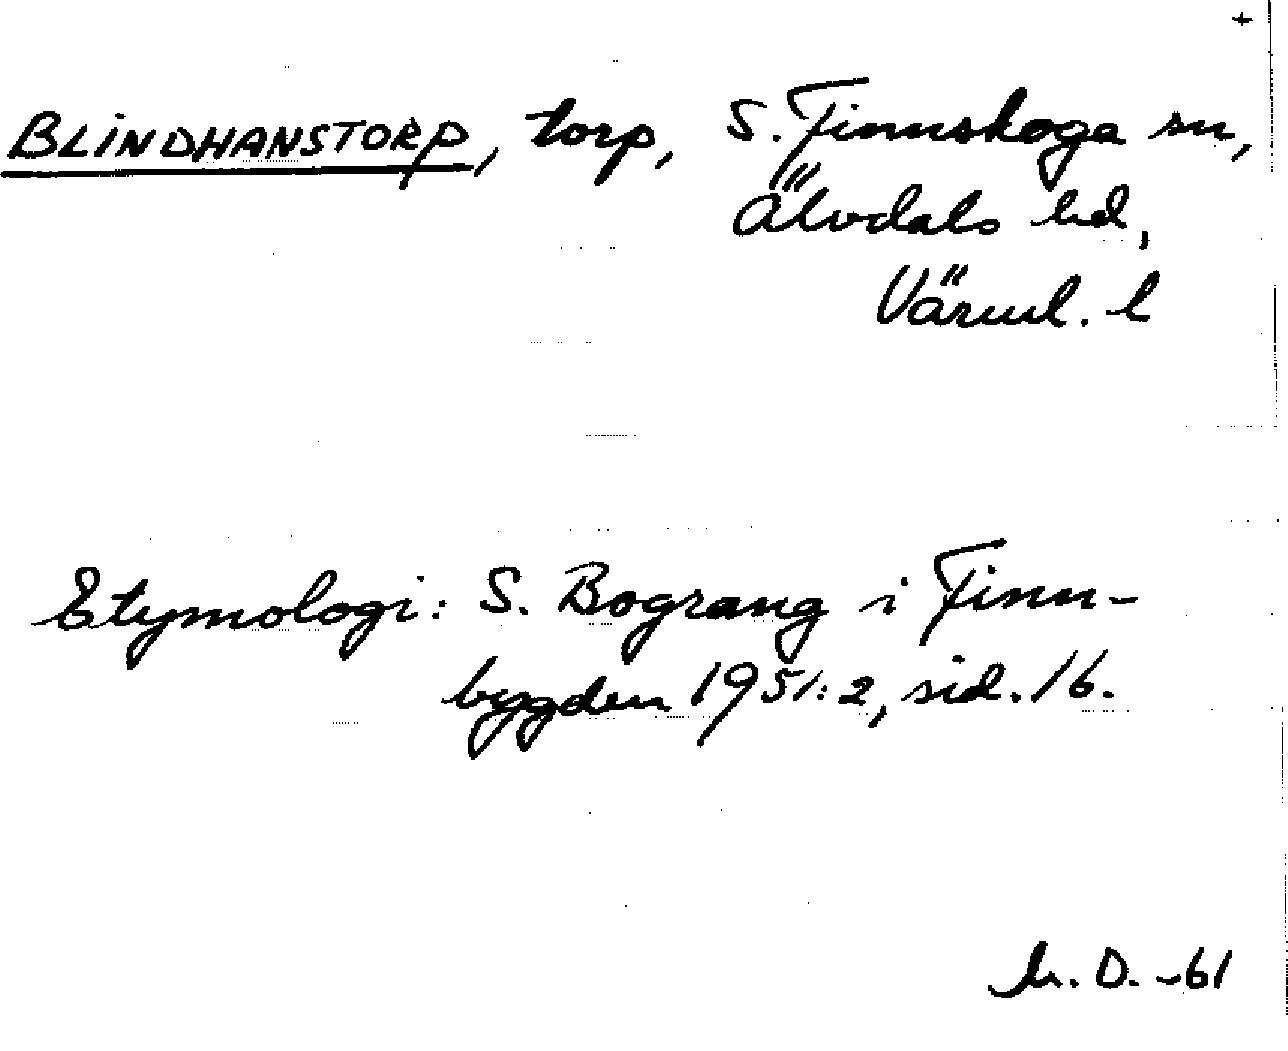 +
BLINDHANSTORP, torp, S. Finnskoga sn,
Älvdals hd,
Värml. l
Etymologi: S. Bograng i Finn-
bygden 1951:2, sid. 16.
D. -61